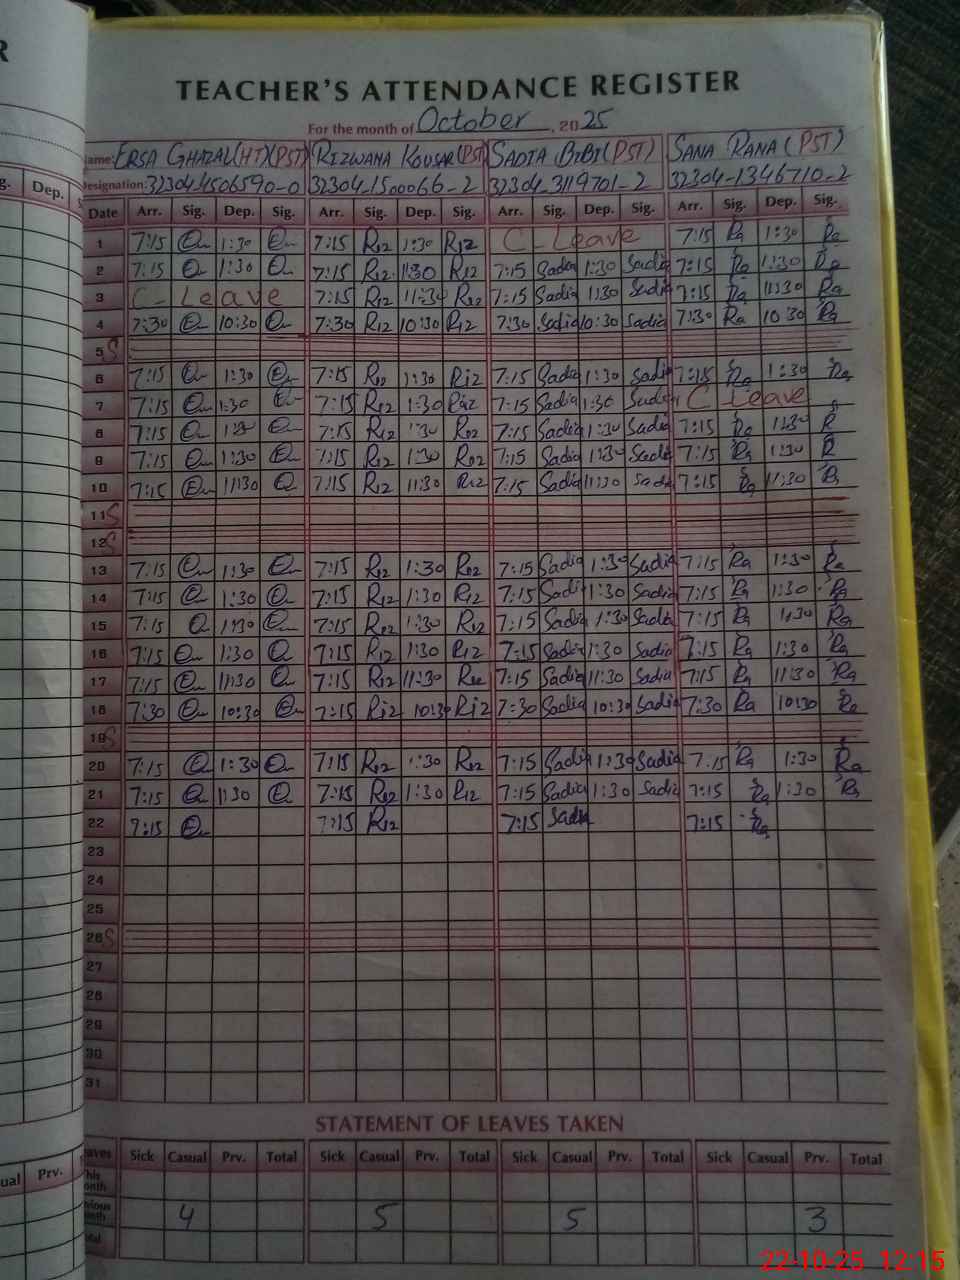 R
TEACHER'S ATTENDANCE REGISTER
For the month of October, 2025
Name: ERSA GHAZAL(HT)(PST) RIZWANA KOUSAR(PST) SADIA BIBI(PST) SANA RANA(PST)
Designation: 32304-1500066-2 32304-3119701-2 32304-1346710-2
g. Dep.
Date Arr. Sig. Dep. Sig. Arr. Sig. Dep. Sig. Arr. Sig. Dep. Sig. Arr. Sig. Dep. Sig.
1 7:15 1:30 7:15 Riz 1:30 Riz C-Leave 7:15 Ra 1:30 Ra
2 7:15 1:30 7:15 Riz 1:30 Riz 7:15 Sadia 1:30 Sadia 7:15 Ra 1:30 Ra
3 C-Leave 7:15 Riz 11:30 Riz 7:15 Sadia 11:30 Sadia 7:15 Ra 11:30 Ra
4 7:30 10:30 7:30 Riz 10:30 Riz 7:30 Sadia 10:30 Sadia 7:30 Ra 10:30 Ra
5 S
6 7:15 1:30 7:15 Riz 1:30 Riz 7:15 Sadia 1:30 Sadia 7:15 Ra 1:30 Ra
7 7:15 1:30 7:15 Riz 1:30 Riz 7:15 Sadia 1:30 Sadia C Leave
8 7:15 1:30 7:15 Riz 1:30 Riz 7:15 Sadia 1:30 Sadia 7:15 Ra 1:30 R
9 7:15 1:30 7:15 Riz 1:30 Riz 7:15 Sadia 1:30 Sadia 7:15 Ra 1:30 R
10 7:15 11:30 7:15 Riz 11:30 Riz 7:15 Sadia 11:30 Sadia 7:15 Ra 11:30 Ra
11 S
12 S
13 7:15 1:30 7:15 Riz 1:30 Riz 7:15 Sadia 1:30 Sadia 7:15 Ra 1:30 Ra
14 7:15 1:30 7:15 Riz 1:30 Riz 7:15 Sadia 1:30 Sadia 7:15 Ra 1:30 Ra
15 7:15 1:30 7:15 Riz 1:30 Riz 7:15 Sadia 1:30 Sadia 7:15 Ra 1:30 Ra
16 7:15 1:30 7:15 Riz 1:30 Riz 7:15 Sadia 1:30 Sadia 7:15 Ra 1:30 Ra
17 7:15 11:30 7:15 Riz 11:30 Riz 7:15 Sadia 11:30 Sadia 7:15 Ra 11:30 Ra
18 7:30 10:30 7:15 Riz 10:30 Riz 7:30 Sadia 10:30 Sadia 7:30 Ra 10:30 Ra
19 S
20 7:15 1:30 7:15 Riz 1:30 Riz 7:15 Sadia 1:30 Sadia 7:15 Ra 1:30 Ra
21 7:15 1:30 7:15 Riz 1:30 Riz 7:15 Sadia 1:30 Sadia 7:15 Ra 1:30 Ra
22 7:15 Riz 7:15 Sadia 7:15 Ra
23
24
25
26 S
27
28
29
30
31
STATEMENT OF LEAVES TAKEN
ual Prv.
Leaves Sick Casual Prv. Total Sick Casual Prv. Total Sick Casual Prv. Total Sick Casual Prv. Total
This Month
Previous Month 4 5 5 3
Total
22-10-25 12:15